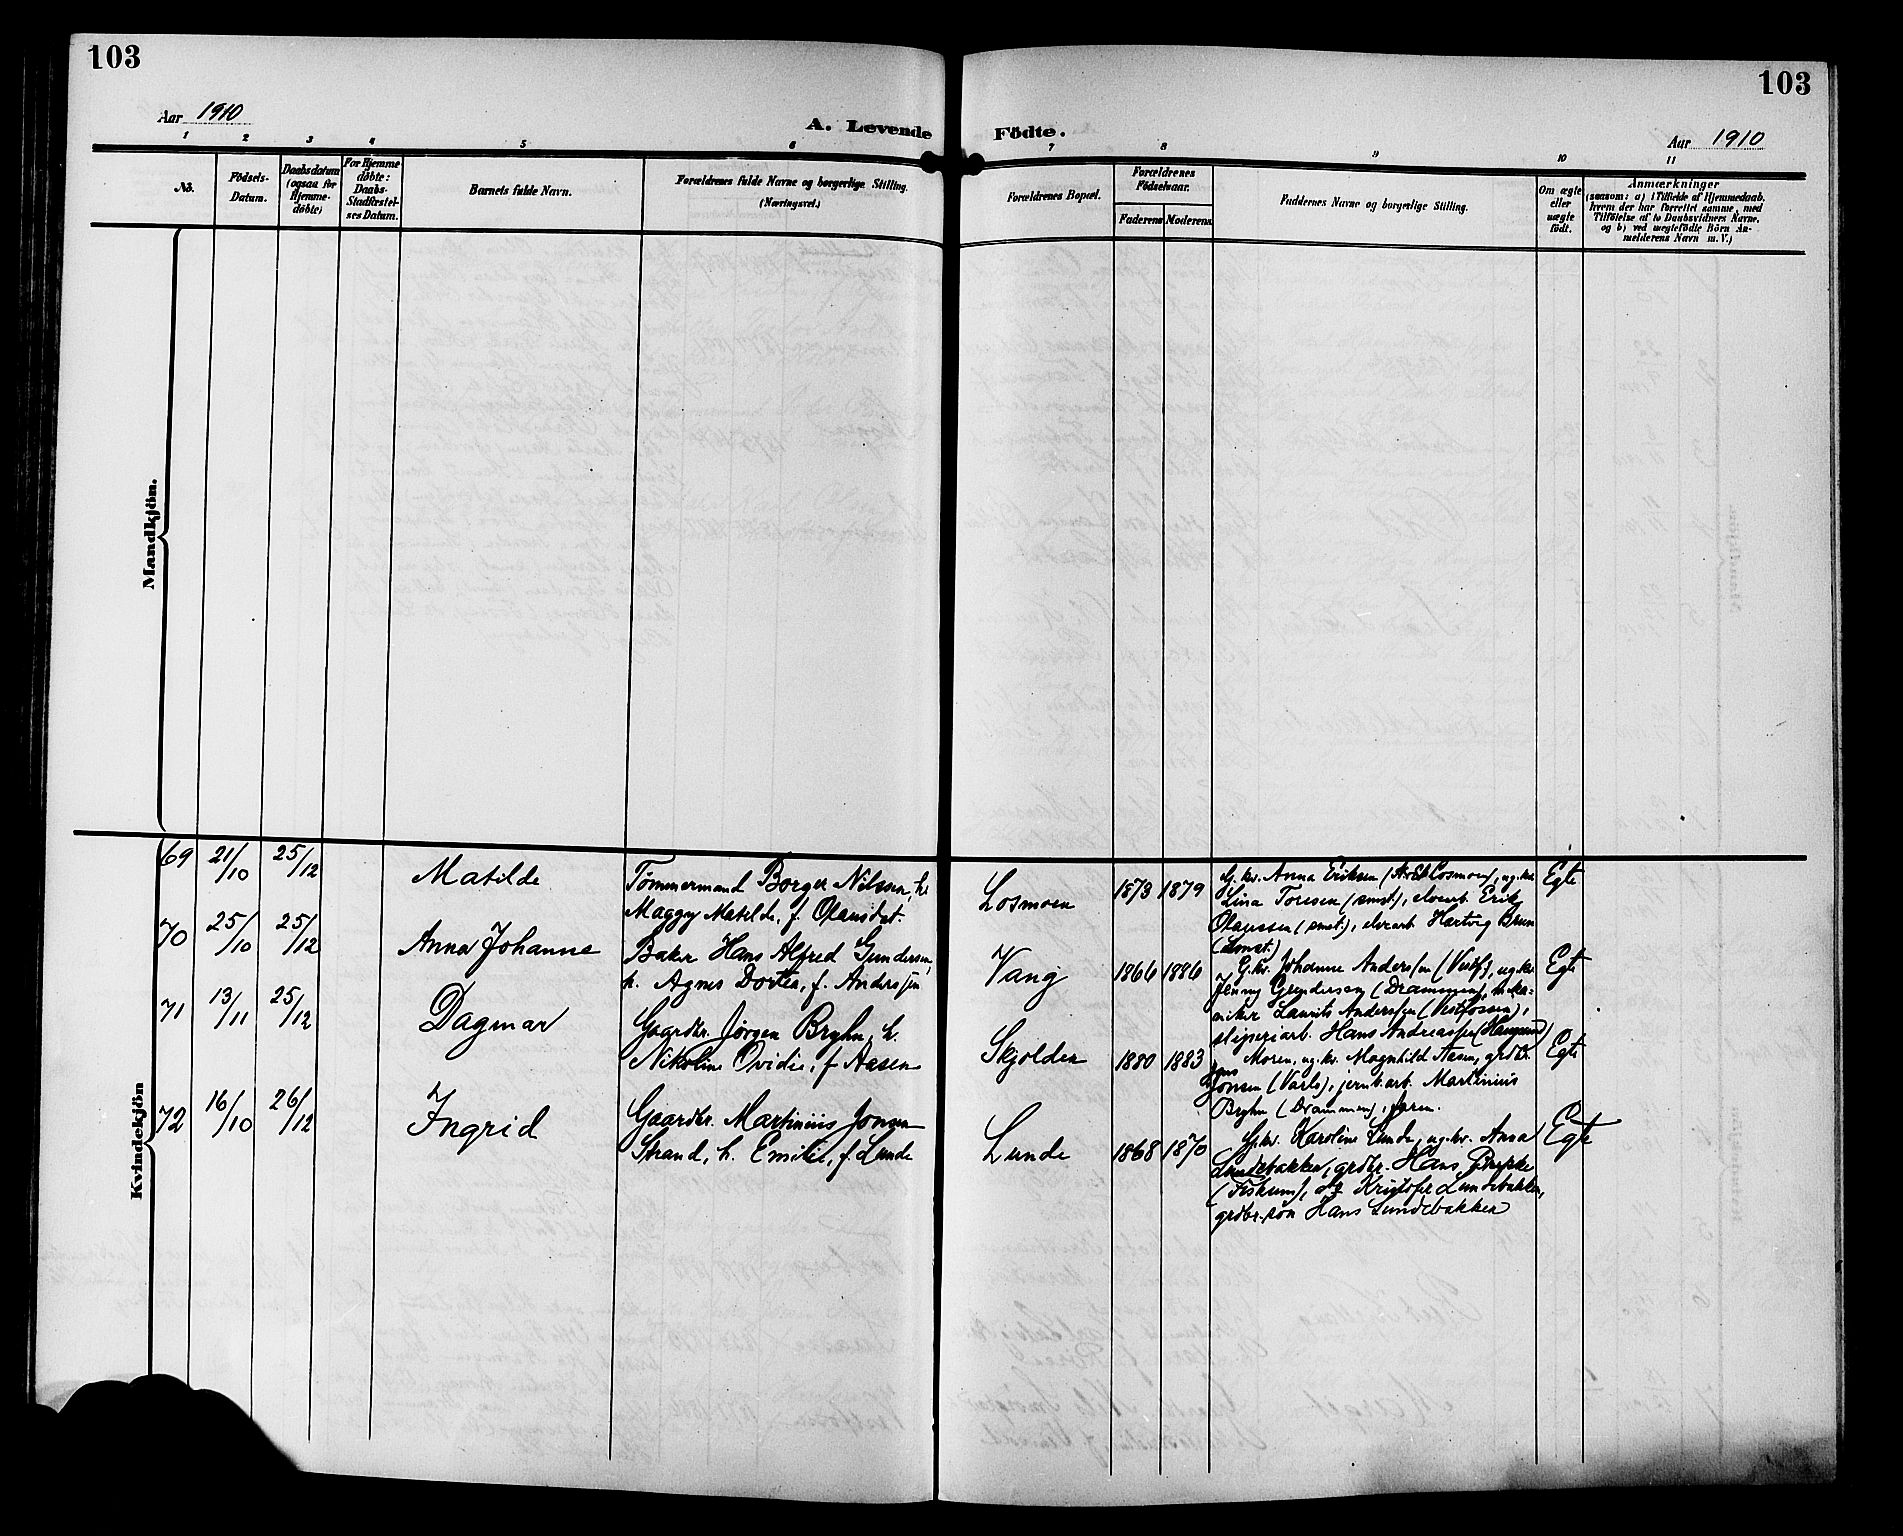 103
103
Aar 1910
A. Levende Födte.
Aar 1910
1 2 3 4 5 6 7 8 9 10 11
No.
Födsels-
Datum.
Daabsdatum
(ogsaa for
Hjemme-
döbte)
For Hjemme-
döbte:
Daabs-
Stadfæstel-
ses Datum.
Barnets fulde Navn.
Forældrenes fulde Navne og borgerlige Stilling.
(Næringsvei.)
Forældrenes Bopæl.
Forældrenes
Födselsaar.
Faderens Moderens.
Faddernes Navne og borgerlige Stilling.
Om ægte
eller
uægte
födt.
Anmærkninger
(saasom: a) i Tilfælde af Hjemmedaab,
hvem der har forrettet samme, med
Tilföielse af to Daabsvidners Navne,
og b) ved uægtefödte Börn An-
melderens Navn m. V.)
Mandkjön.
Kvindekjön
69 21/10 25/12 Matilde
Tömmermand Borger Nilssen, h.
Maggy Matilde, f. Olausdat.
Losmoen 1873 1879
G. kv. Anna Eriksen (Losmoen), ug. kv.
Lina Toresen (smst.), elvearb. Erik
Olaussen (smst.), elvearb. Hartvig Bruun
(smst.)
Egte
70 25/10 25/12 Anna Johanne
Baker Hans Alfred Gundersen,
h. Agnes Dortea, f. Anderssen
Vang 1866 1886
G. kv. Johanne Anderssen (Vestf.), ug. kv.
Jenny Gundersen (Drammen), meka-
niker Laurits Anderssen (Vestfossen),
sliperiarb. Hans Andreassen
Egte
71 13/11 25/12 Dagmar
Gaardbr. Jørgen Bryhn, h.
Nikoline Ovidie, f. Aasen
Skjolden 1880 1883
Moren, ug. kv. Magnhild Aasen, grdbr.
Jens
Jonsen (Varlo), jernb.arb. Martinius
Bryhn (Drammen), faren.
Egte
72 16/10 26/12 Ingrid
Gaardbr. Martinius Jonsen
Strand, h. Emilie, f. Lunde
Lunde 1868 1870
G. kv. Karoline Lunde, ug. kv. Anna
Lundebakken, grdbr. Hans
(Fiskum), Kristofer Lundebakken,
grdbr. søn Hans Lundebakken
Egte